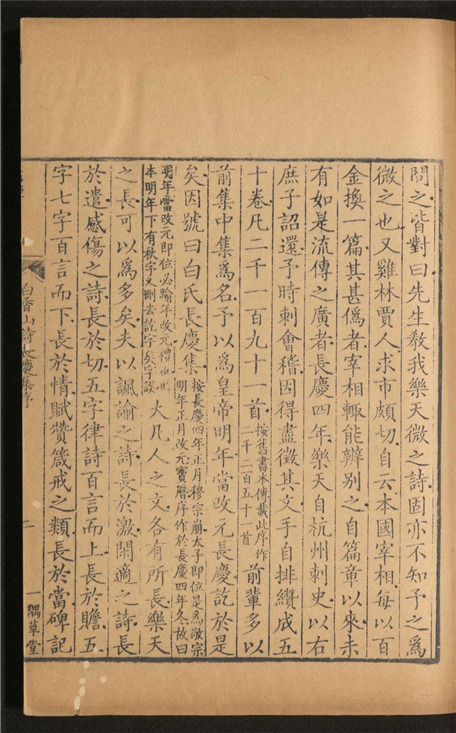 問之皆對曰先生教我樂天微之詩固亦不知予之爲
微之也又雞林賈人求市頗切自云本國宰相每以百
金換一篇其甚僞者宰相輒能辨別之自篇章以來未
有如是流傳之廣者長慶四年樂天自杭州刺史以右
庶子詔還予時刺會稽因得盡徵其文手自排纘成五
十卷凡二千一百九十一首按舊書本傳載此序作二千二百五十一首前輩多以
前集中集爲名予以爲皇帝明年當改元長慶訖於是
矣因號曰白氏長慶集按長慶四年正月穆宗崩太子即位是爲敬宗明年正月改元寶曆序作於長慶四年冬故曰
明年當改元即位必踰年改元禮也本明年下有秋字又刪去訖字矣字誤大凡人之文各有所長樂天
之長可以爲多矣夫以諷諭之詩長於激閒適之詩長
於遣感傷之詩長於切五字律詩百言而上長於贍五
字七字百言而下長於情賦贊箴戒之類長於當碑記
白香山詩長慶集序
二
一隅草堂